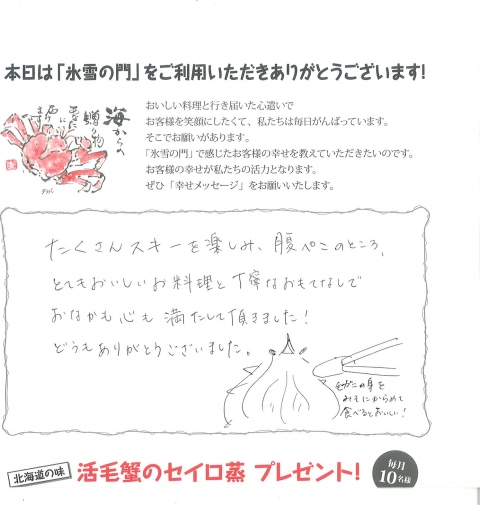 本日は「氷雪の門」をご利用いただきありがとうございます!
海からの
贈り物
あなたに
届けます
タラバ
おいしい料理と行き届いた心遣いで
お客様を笑顔にしたくて、私たちは毎日がんばっています。
そこでお願いがあります。
「氷雪の門」で感じたお客様の幸せを教えていただきたいのです。
お客様の幸せが私たちの活力となります。
ぜひ「幸せメッセージ」をお願いいたします。
たくさんスキーを楽しみ、腹ぺこのところ、
とてもおいしいお料理と丁寧なおもてなしで
おなかも心も満たして頂きました!
どうもありがとうございました。
毛がにの身を
みそにからめて
食べるとおいしい!
北海道の味
活毛蟹のセイロ蒸 プレゼント!
毎月
10名様